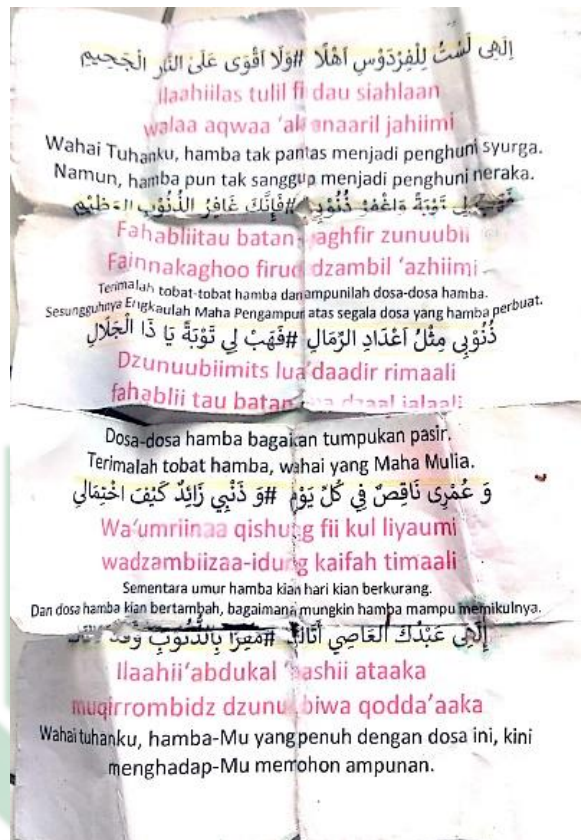 إِلٰهِى لَسْتُ لِلْفِرْدَوْسِ اَهْلًا #وَلَا اَقْوٰى عَلَى النَّارِ الْجَحِيْمِ
ilaahiilas tulil fi dau siahlaan
walaa aqwaa 'al naaril jahiimi
Wahai Tuhanku, hamba tak pantas menjadi penghuni syurga.
Namun, hamba pun tak sanggup menjadi penghuni neraka.
لِى تَوْبَةً وَاغْفِرْ ذُنُوْبِى #فَإِنَّكَ غَافِرُ الذُّنُوْبِ العَظِيْمِ
Fahabliitau batan aghfir zunuubii
Fainnakaghoo firud dzambil 'azhiimi
Terimalah tobat-tobat hamba dan ampunilah dosa-dosa hamba.
Sesungguhnya Engkaulah Maha Pengampun atas segala dosa yang hamba perbuat.
ذُنُوْبِى مِثْلُ اَعْدَادِ الرِّمَالِ #فَهَبْ لِى تَوْبَةً يَا ذَا الْجَلَالِ
Dzunuubiimits lua'daadir rimaali
fahablii tau batan dzaal jalaali
Dosa-dosa hamba bagaikan tumpukan pasir.
Terimalah tobat hamba, wahai yang Maha Mulia.
وَ عُمْرِى نَاقِصٌ فِي كُلِّ يَوْمٍ #وَ ذَنْبِي زَائِدٌ كَيْفَ احْتِمَالِي
Wa'umriinaa qishung fii kul liyaumi
wadzambiizaa-idung kaifah timaali
Sementara umur hamba kian hari kian berkurang.
Dan dosa hamba kian bertambah, bagaimana mungkin hamba mampu memikulnya.
إِلٰهِى عَبْدُكَ العَاصِي أَتَاكَ #مُقِرًّا بِالذُّنُوبِ وَقَدْ
Ilaahii'abdukal 'aashii ataaka
muqirrombidz dzunuubiwa qodda'aaka
Wahai tuhanku, hamba-Mu yang penuh dengan dosa ini, kini
menghadap-Mu memohon ampunan.